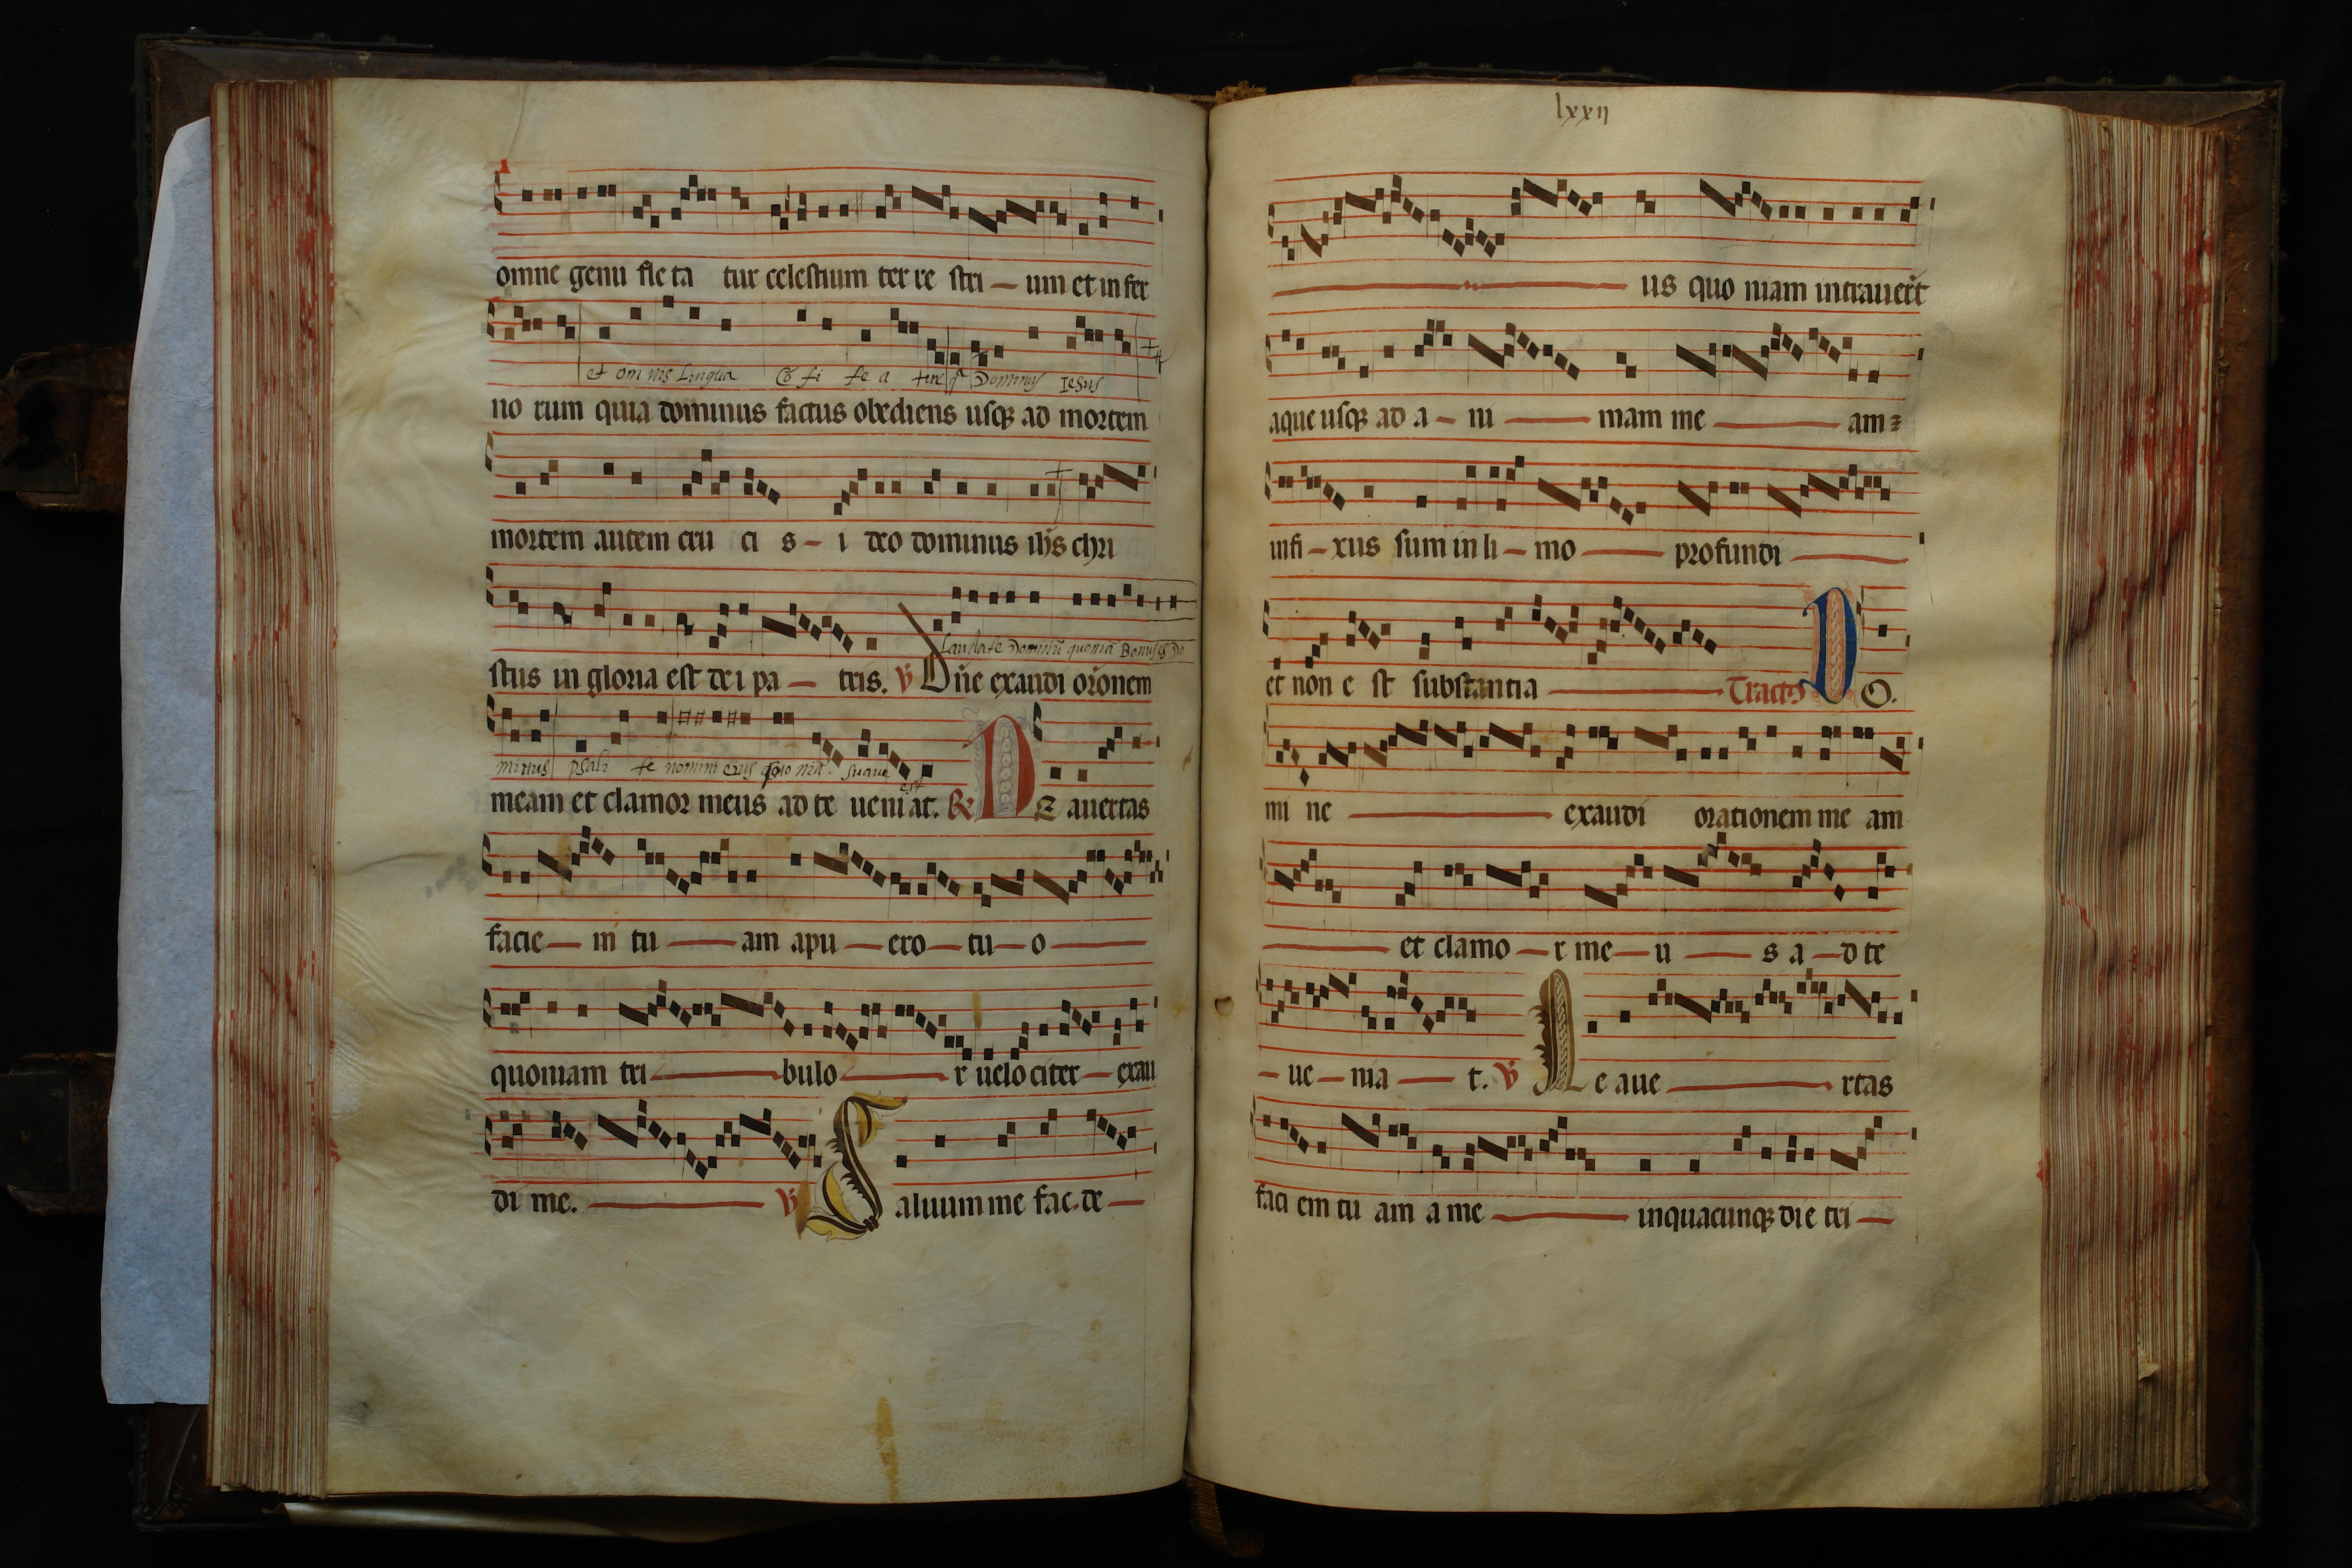 omne genu flecta tur celestium ter re stri — um et in fer
et om nis Lingua Cō fi te a tur q̄ Dominus Iesus
no rum quia dominus factus obediens usq̢ ad mortem
mortem autem cru ci s – i deo dominus ihs chri
Laudate Dominū quoniā Bonus est Do
stus in gloria est de i pa — tris. ℣ Dñe exaudi orōnem
minus psali te nomini eius quo niā suaue est
meam et clamor meus ad te ueni at. ℟ NE auertas
facie — m tu — am apu — ero — tu — o —
quoniam tri — bulo — r uelociter — exau
di me. — ℣ Saluum me fac. de —
lxxii
— us quo niam intrauert̄
aque usq̢ ad a – ni — mam me — am
infi – xus sum in li – mo — profundi —
et non e st substantia — Tractꝰ DO.
mi ne — exaudi orationem me am
— et clamo — r me — u — s a — d te
– ue – nia — t. ℣ Ne aue — rtas
faci em tu am a me — inquacunq̢ die tri —